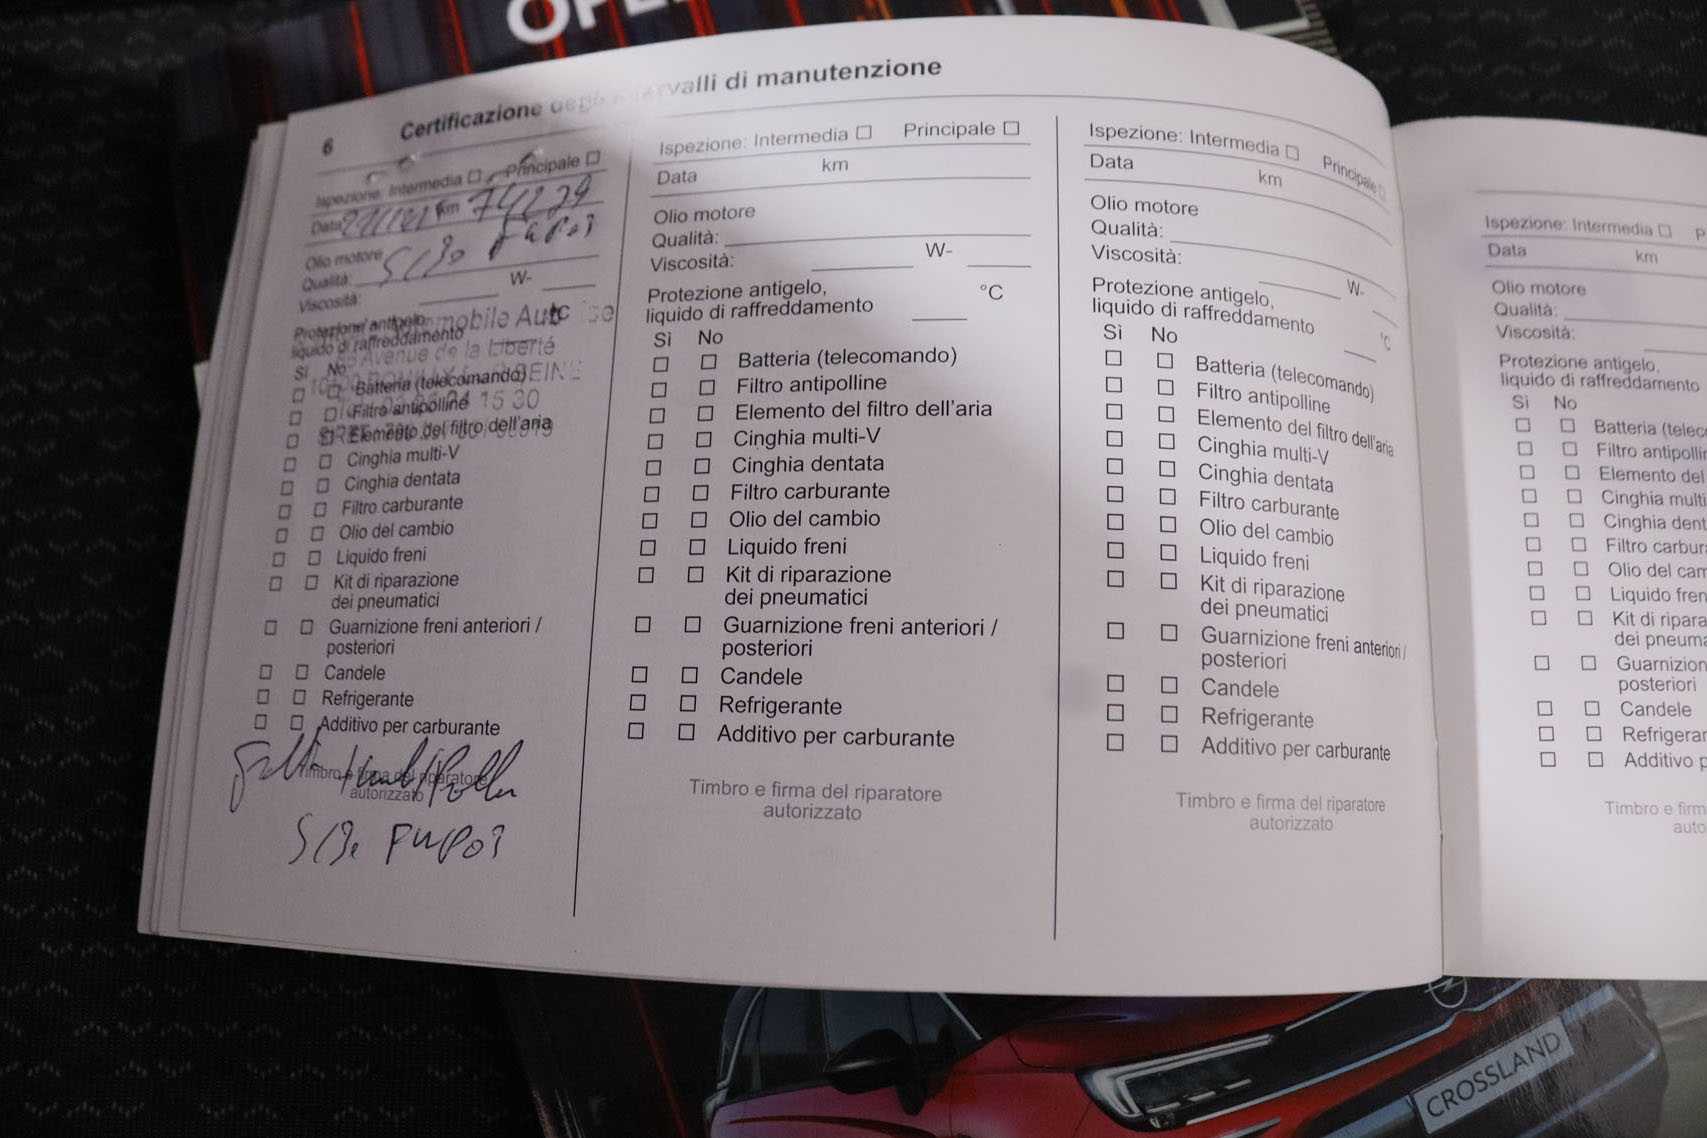 OPEL
6
Certificazione degli intervalli di manutenzione
Ispezione: Intermedia ☐ Principale ☐
Data km
Olio motore
Qualità:
Viscosità: W-
Protezione antigelo,
liquido di raffreddamento
Avenue de la Liberté
15 30
Sì No
☐ ☐ Batteria (telecomando)
☐ ☐ Filtro antipolline
☐ ☐ Elemento del filtro dell'aria
☐ ☐ Cinghia multi-V
☐ ☐ Cinghia dentata
☐ ☐ Filtro carburante
☐ ☐ Olio del cambio
☐ ☐ Liquido freni
☐ ☐ Kit di riparazione
dei pneumatici
☐ ☐ Guarnizione freni anteriori /
posteriori
☐ ☐ Candele
☐ ☐ Refrigerante
☐ ☐ Additivo per carburante
Timbro e firma del riparatore
autorizzato
Ispezione: Intermedia ☐ Principale ☐
Data km
Olio motore
Qualità:
Viscosità: W-
Protezione antigelo,
liquido di raffreddamento °C
Sì No
☐ ☐ Batteria (telecomando)
☐ ☐ Filtro antipolline
☐ ☐ Elemento del filtro dell'aria
☐ ☐ Cinghia multi-V
☐ ☐ Cinghia dentata
☐ ☐ Filtro carburante
☐ ☐ Olio del cambio
☐ ☐ Liquido freni
☐ ☐ Kit di riparazione
dei pneumatici
☐ ☐ Guarnizione freni anteriori /
posteriori
☐ ☐ Candele
☐ ☐ Refrigerante
☐ ☐ Additivo per carburante
Timbro e firma del riparatore
autorizzato
Ispezione: Intermedia ☐ Principale ☐
Data km
Olio motore
Qualità:
Viscosità: W-
Protezione antigelo,
liquido di raffreddamento °C
Sì No
☐ ☐ Batteria (telecomando)
☐ ☐ Filtro antipolline
☐ ☐ Elemento del filtro dell'aria
☐ ☐ Cinghia multi-V
☐ ☐ Cinghia dentata
☐ ☐ Filtro carburante
☐ ☐ Olio del cambio
☐ ☐ Liquido freni
☐ ☐ Kit di riparazione
dei pneumatici
☐ ☐ Guarnizione freni anteriori /
posteriori
☐ ☐ Candele
☐ ☐ Refrigerante
☐ ☐ Additivo per carburante
Timbro e firma del riparatore
autorizzato
Ispezione: Intermedia ☐ P
Data km
Olio motore
Qualità:
Viscosità:
Protezione antigelo,
liquido di raffreddamento
Sì No
☐ ☐ Batteria (teleco
☐ ☐ Filtro antipollin
☐ ☐ Elemento del
☐ ☐ Cinghia multi
☐ ☐ Cinghia dent
☐ ☐ Filtro carbura
☐ ☐ Olio del cam
☐ ☐ Liquido fren
☐ ☐ Kit di ripara
dei pneuma
☐ ☐ Guarnizion
posteriori
☐ ☐ Candele
☐ ☐ Refrigeran
☐ ☐ Additivo p
Timbro e firm
auto
CROSSLAND